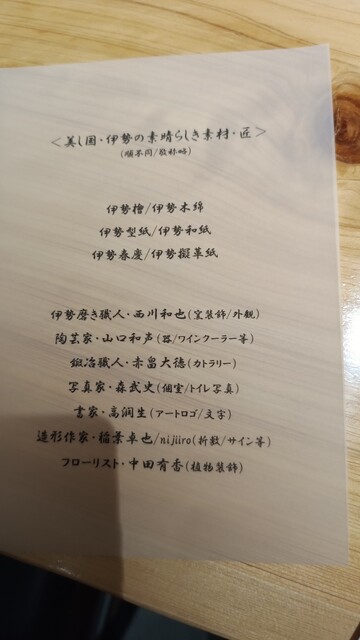 <美し国・伊勢の素晴らしき素材・匠>
(順不同/敬称略)
伊勢檜/伊勢木綿
伊勢型紙/伊勢和紙
伊勢春慶/伊勢擬革紙
伊勢磨き職人・西川和也(窯装飾/外観)
陶芸家・山口和声(器/ワインクーラー等)
鍛冶職人・赤畠大徳(カトラリー)
写真家・森武史(個室/トイレ写真)
書家・高潤生(アートロゴ/文字)
造形作家・稲葉卓也/nijiiro(折敷/サイン等)
フローリスト・中田有香(植物装飾)